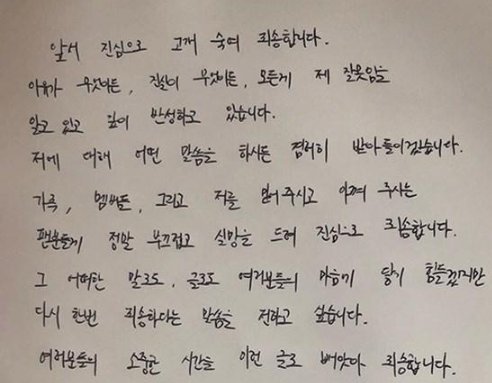 앞서 진심으로 고개 숙여 죄송합니다.
이유가 무엇이든, 진실이 무엇이든, 모든게 제 잘못임을
알고 있고 깊이 반성하고 있습니다.
저에 대해 어떤 말씀을 하시든 겸허히 받아들이겠습니다.
가족, 멤버들, 그리고 저를 믿어주시고 아껴 주시는
팬분들게 정말 부끄럽고 실망을 드려 진심으로 죄송합니다.
그 어떠한 말로도, 글로도 여러분들의 마음기 닿지 힘들겠지만
다시 한번 죄송하다는 말씀을 전하고 싶습니다.
여러분들의 소중한 시간을 이런 글로 빼앗아 죄송합니다.